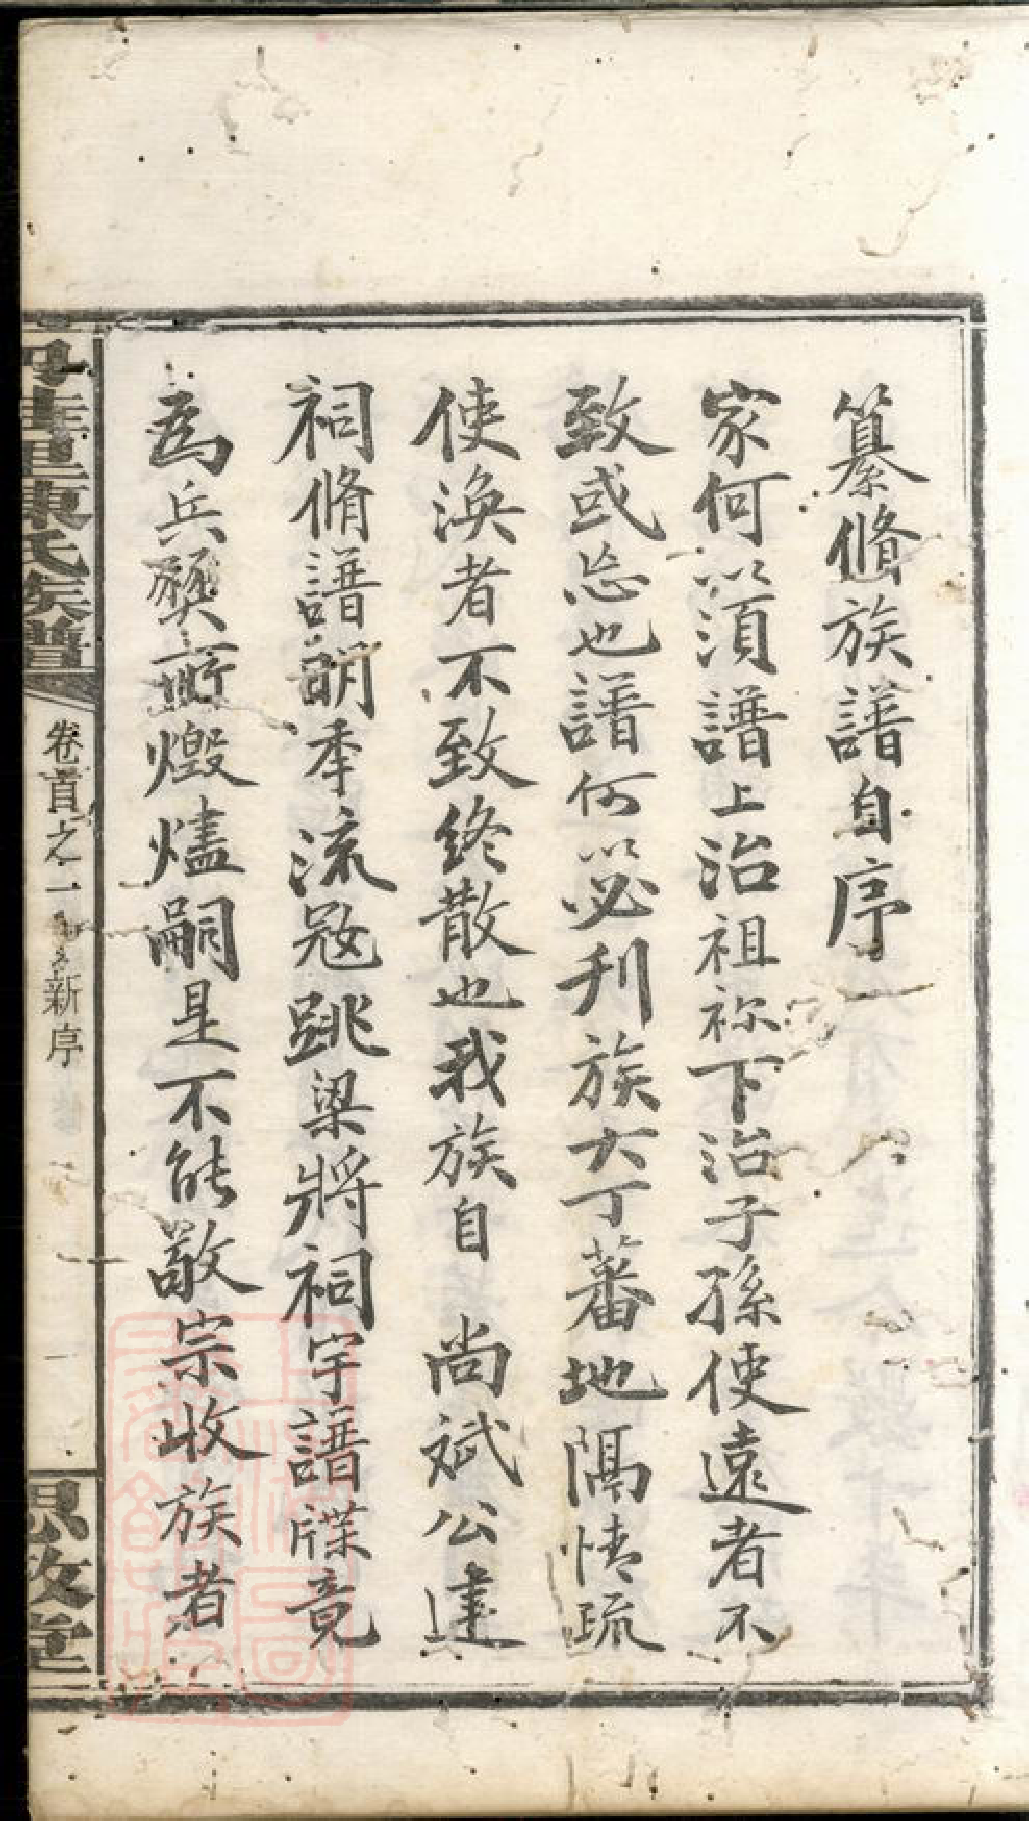 纂脩族譜自序
家何以須譜上治祖祢下治子孫使遠者不
致或忘也譜何以必刋族大丁蕃地隔情疏
使渙者不致終散也我族自　尚斌公建
祠脩譜明季流冦跳梁將祠宇譜牒竟
為兵燹燬燼嗣是不能敬宗收族者
陳氏族譜
卷首之一
新序
思敬堂